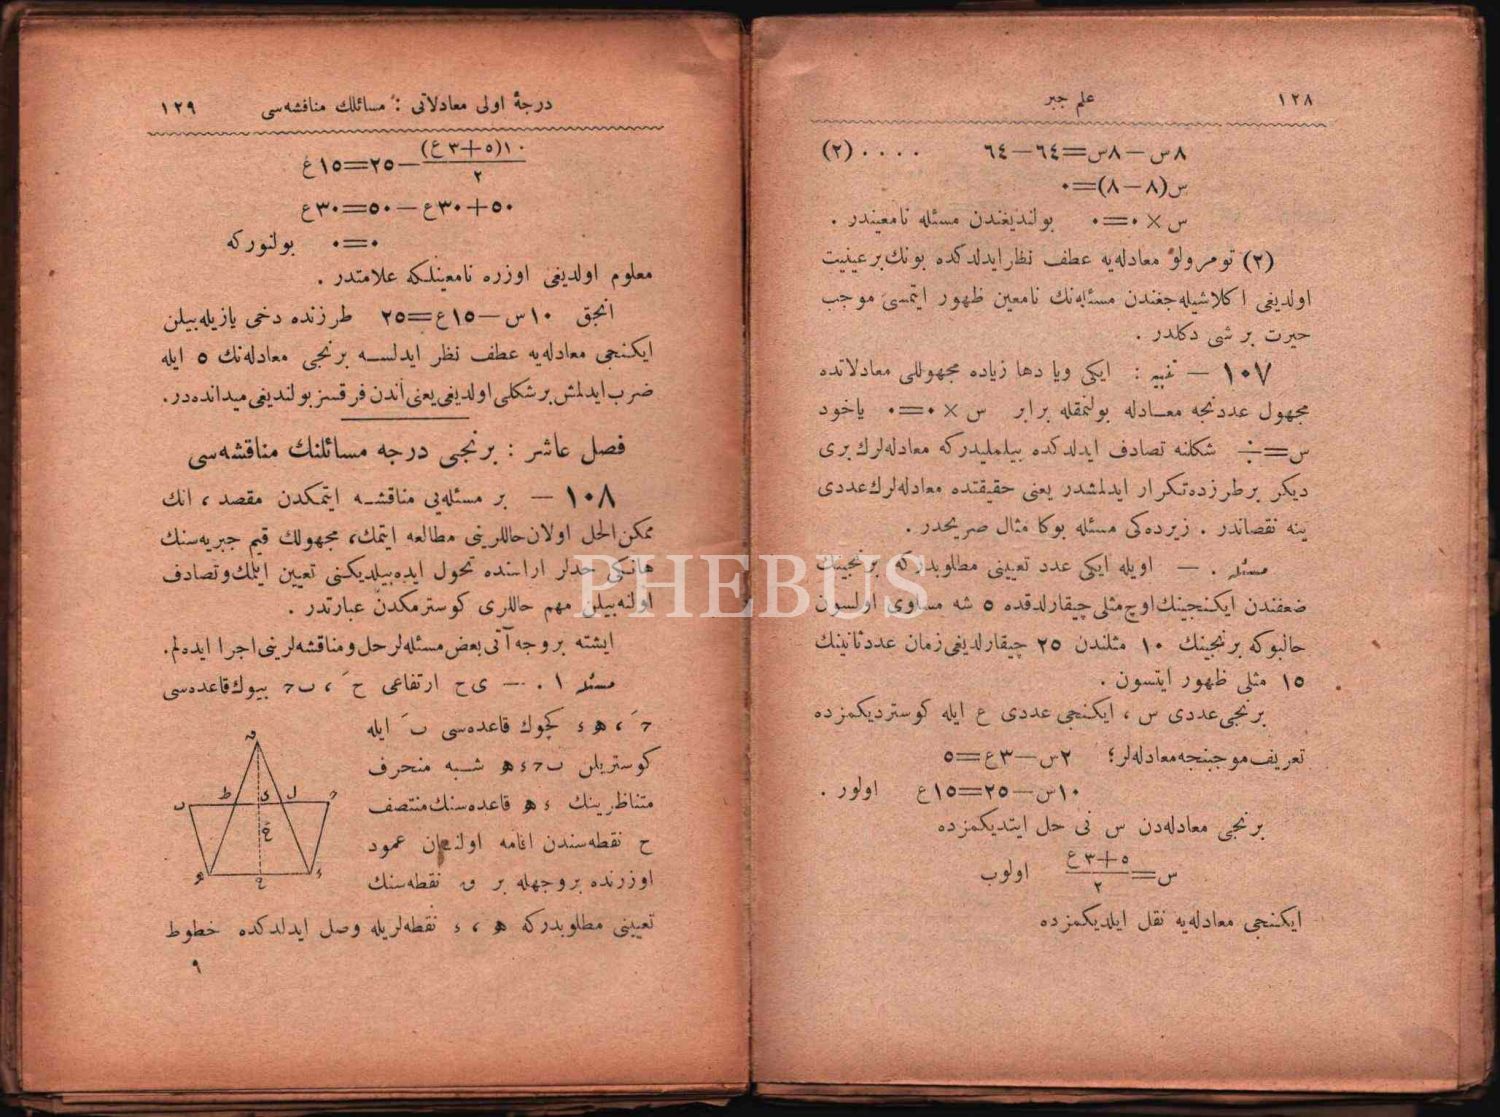 ١٢٨
علم جبر
٨س — ٨س = ٦٤ — ٦٤ . . . . (٢)
س(٨ — ٨) = ٠
س × ٠ = ٠ بولنديغندن مسئله نامعيندر .
(٢) نومرولو معادله‌يه عطف نظر ايدلدكده بونك بر عينيت
اولديغى اكلاشيله‌جغندن مسئله‌نك نامعين ظهور ايتمسى موجب
حيرت بر شى دكلدر .
١٠٧ — تنبيه : ايكى ويا دها زياده مجهوللى معادلاتده
مجهول عددنجه معادله بولنمقله برابر س × ٠ = ٠ ياخود
س = ٠/٠ شكلنه تصادف ايدلدكده بيلمليدركه معادله‌لرك برى
ديكر بر طرزده تكرار ايدلمشدر يعنى حقيقتده معادله‌لرك عددى
ينه نقصاندر . زيرده‌كى مسئله بوكا مثال صريحدر .
مسئله . — اويله ايكى عدد تعيينى مطلوبدركه برنجينك
ضعفندن ايكنجينك اوچ مثلى چيقارلدقده ٥ شه مساوى اولسون
حالبوكه برنجينك ١٠ مثلندن ٢٥ چيقارلديغى زمان عدد ثانينك
١٥ مثلى ظهور ايتسون .
برنجى عددى س ، ايكنجى عددى ع ايله كوسترديكمزده
تعريف موجبنجه معادله‌لر؛ ٢س — ٣ع = ٥
١٠س — ٢٥ = ١٥ع اولور .
برنجى معادله‌دن س نى حل ايتديكمزده
س = (٥ + ٣ع)/٢ اولوب
ايكنجى معادله‌يه نقل ايلديكمزده
درجهٔ اولى معادلاتى : مسائلك مناقشه‌سى
١٢٩
١٠(٥ + ٣ع)/٢ — ٢٥ = ١٥ع
٥٠ + ٣٠ع — ٥٠ = ٣٠ع
٠ = ٠ بولنوركه
معلوم اولديغى اوزره نامعينلكه علامتدر .
انجق ١٠س — ١٥ع = ٢٥ طرزنده دخى يازيله‌بيلن
ايكنجى معادله‌يه عطف نظر ايدلسه برنجى معادله‌نك ٥ ايله
ضرب ايدلمش بر شكلى اولديغى يعنى آندن فرقسز بولنديغى ميدانده‌در.
فصل عاشر : برنجى درجه مسائلنك مناقشه‌سى
١٠٨ — بر مسئله‌يى مناقشه ايتمكدن مقصد ، انك
ممكن الحل اولان حاللرينى مطالعه ايتمك، مجهولك قيم جبريه‌سنك
هانكى حدلر اراسنده تحول ايده‌بيلديكنى تعيين ايلمك و تصادف
اولنه‌بيلن مهم حاللرى كوسترمكدن عبارتدر .
ايشته بروجه آتى بعض مسئله‌لر حل و مناقشه‌لرينى اجرا ايده‌لم.
مسئله ١ . — ى ح ارتفاعى ح َ ، ب ح بيوك قاعده‌سى
ح َ ، ه ء كچوك قاعده‌سى ب َ ايله
كوستريلن ب ح ء ه شبه منحرف
متناظرينك ء ه قاعده‌سنك منتصف
ح نقطه‌سندن اقامه اولنان عمود
اوزرنده بروجهله بر ق نقطه‌سنك
تعيينى مطلوبدركه ه ، ء نقطه‌لريله وصل ايدلدكده خطوط
٩
PHEBUS